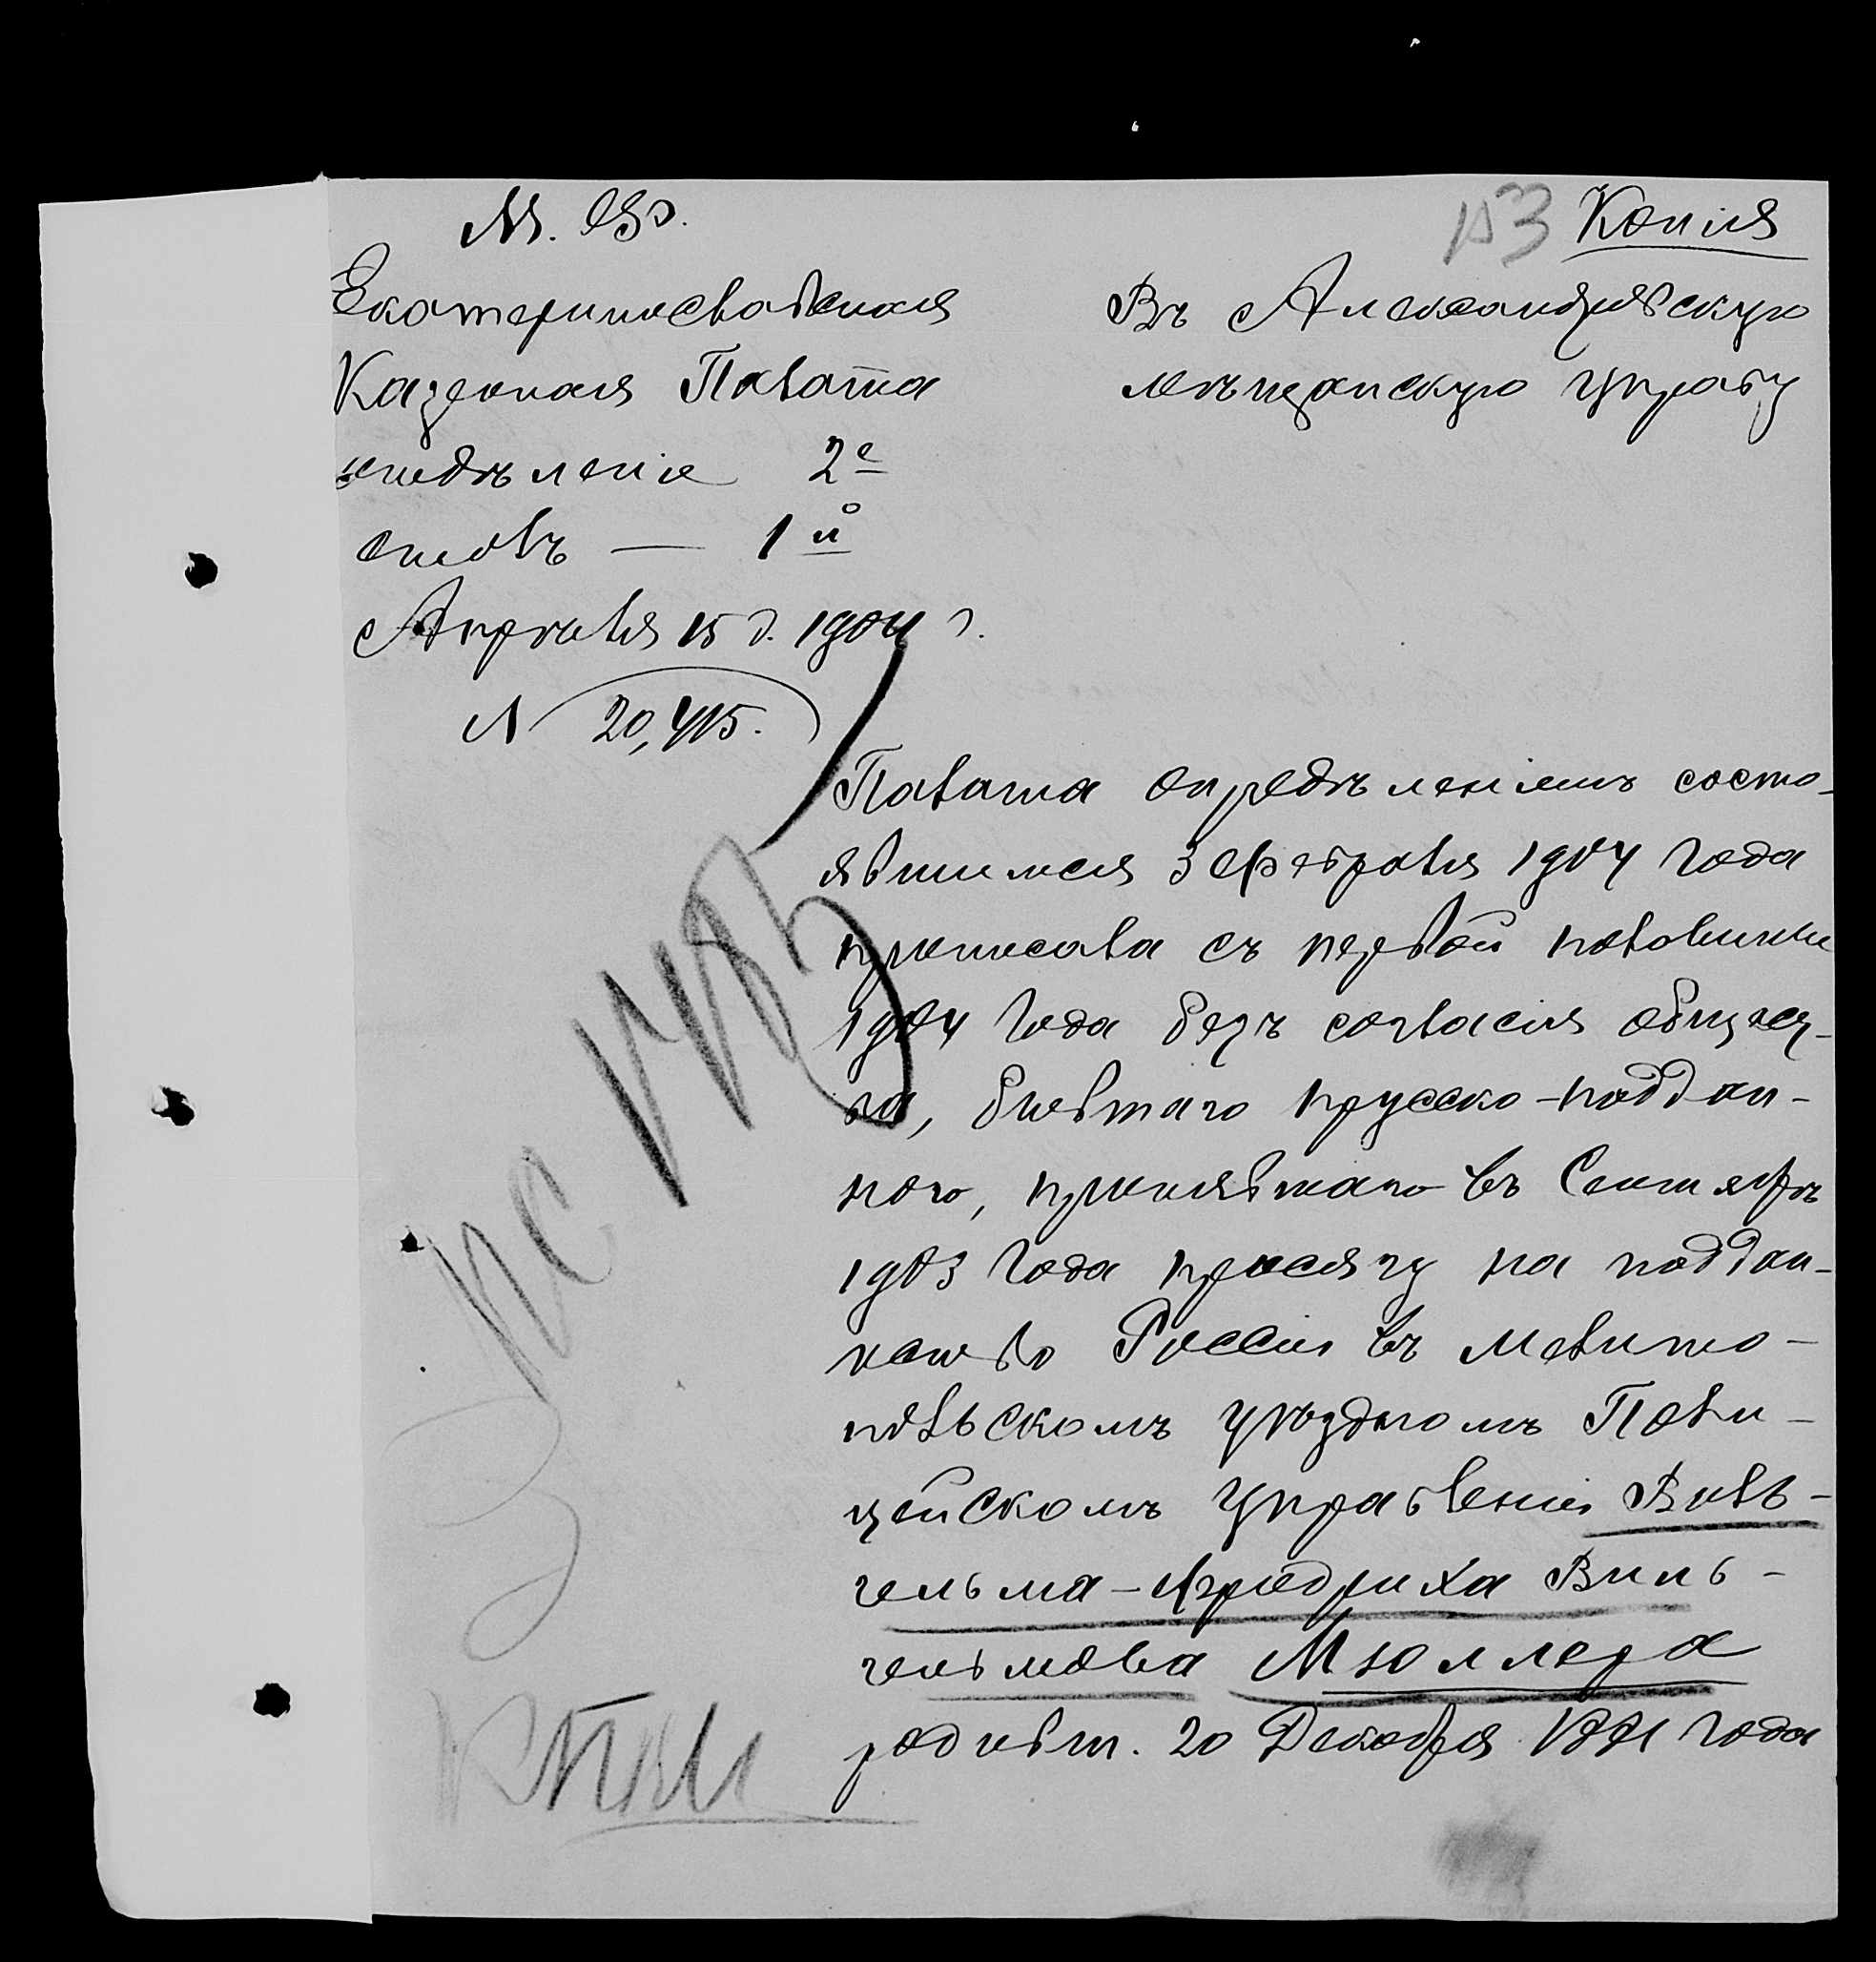 М. Ф.
153 Копія
Екатеринославская
Казенная Палата
отдѣленіе 2е
столъ — 1й
Апрѣля 15 д. 1904 г.
№ 20,415.
Въ Александровскую
мѣщанскую управу
Палата опредѣленіемъ состо-
явшимся 3 Февраля 1904 года
приписала съ первой половины
1904 года безъ согласія общест-
ва, бывшаго прусско-поддан-
наго, принявшаго въ Сентябрѣ
1903 года присягу на поддан-
нство Россіи въ Мелито-
польскомъ уѣздномъ Поли-
цейскомъ Управленіи Виль-
гельма-Фридриха Виль-
гельмова Мюллера
родивш. 20 Декабря 1881 года